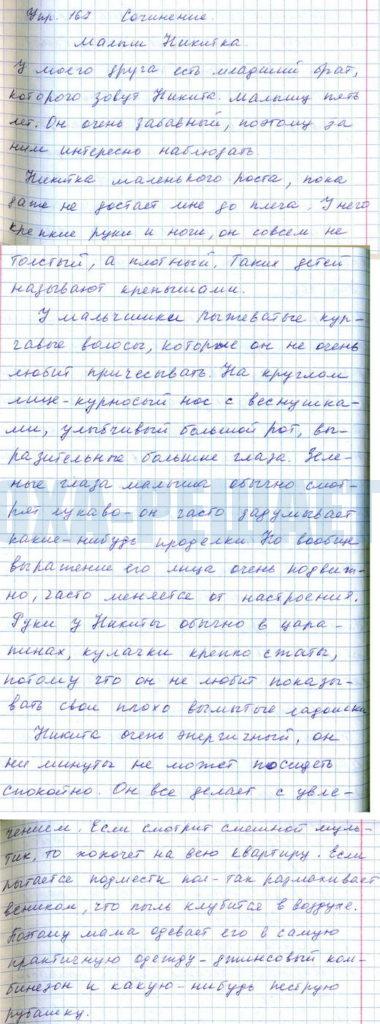 Упр. 167 Сочинение.
Малыш Никитка.
У моего друга есть младший брат,
которого зовут Никита. Малышу пять
лет. Он очень забавный, поэтому за
ним интересно наблюдать
Никитка маленького роста, пока
даже не достает мне до плеча. У него
крепкие руки и ноги, он совсем не
толстый, а плотный. Таких детей
называют крепышами.
У мальчишки рыжеватые кур-
чавые волосы, которые он не очень
любит причесывать. На круглом
лице-курносый нос с веснушка-
ми, улыбчивый большой рот, вы-
разительные большие глаза. Зеле-
ные глаза малыша обычно смот-
рят лукаво-он часто задумывает
какие-нибудь проделки. Но вообще
выражение его лица очень подвиж-
но, часто меняется от настроения.
Руки у Никиты обычно в цара-
пинах, кулачки крепко сжаты,
потому что он не любит показы-
вать свои плохо вымытые ладошки
Никита очень энергичный, он
ни минуты не может посидеть
спокойно. Он все делает с увле-
чением. Если смотрит смешной муль-
тик, то хохочет на всю квартиру. Если
пытается подмести пол-так размахивает
веником, что пыль клубится в воздухе.
Поэтому мама одевает его в самую
практичную одежду-джинсовый ком-
бинезон и какую-нибудь пеструю
рубашку.